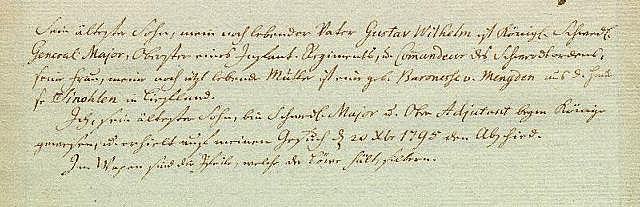 Sein ältester Sohn, mein noch lebender Vater Gustav Wilhelm ist Königl. Schwed.
General Major, Obrister eines Infant. Regiments, u. Comandeur des Schwerdtordens,
seine Frau, meine noch itzt lebende Mutter ist eine geb. Baronesse v. Mengden aus d. Hau
se Sinohlen in Liefland.
Ich, sein ältester Sohn, bin Schwed. Major u. Ober Adjutant beym Könige
gewesen, u. erhielt auf meinen Gesuch d. 20 Xbr 1795 den Abschied.
Im Wapen sind die Pfeile, welche der Löwe hält, silbern.